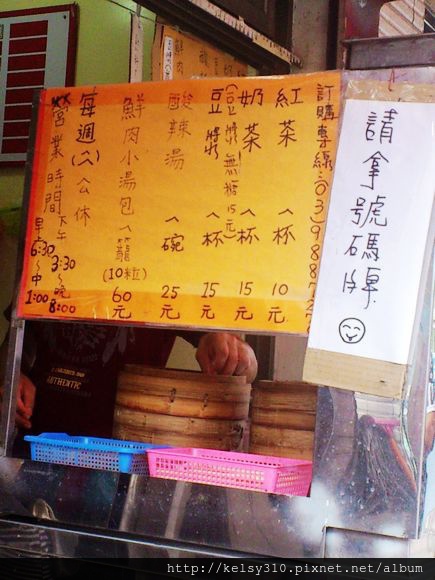 訂購專線:(03)988
紅茶 一杯 10元
奶茶 一杯 15元
(豆漿無糖15元)
豆漿 一杯 15元
酸辣湯 一碗 25元
鮮肉小湯包 一籠(10粒) 60元
每週(六)公休
營業時間
早 6:30～中 1:00
下午 3:30～晚 8:00
請拿號碼牌
AUTHENTIC
http://kelsy310.pixnet.net/album